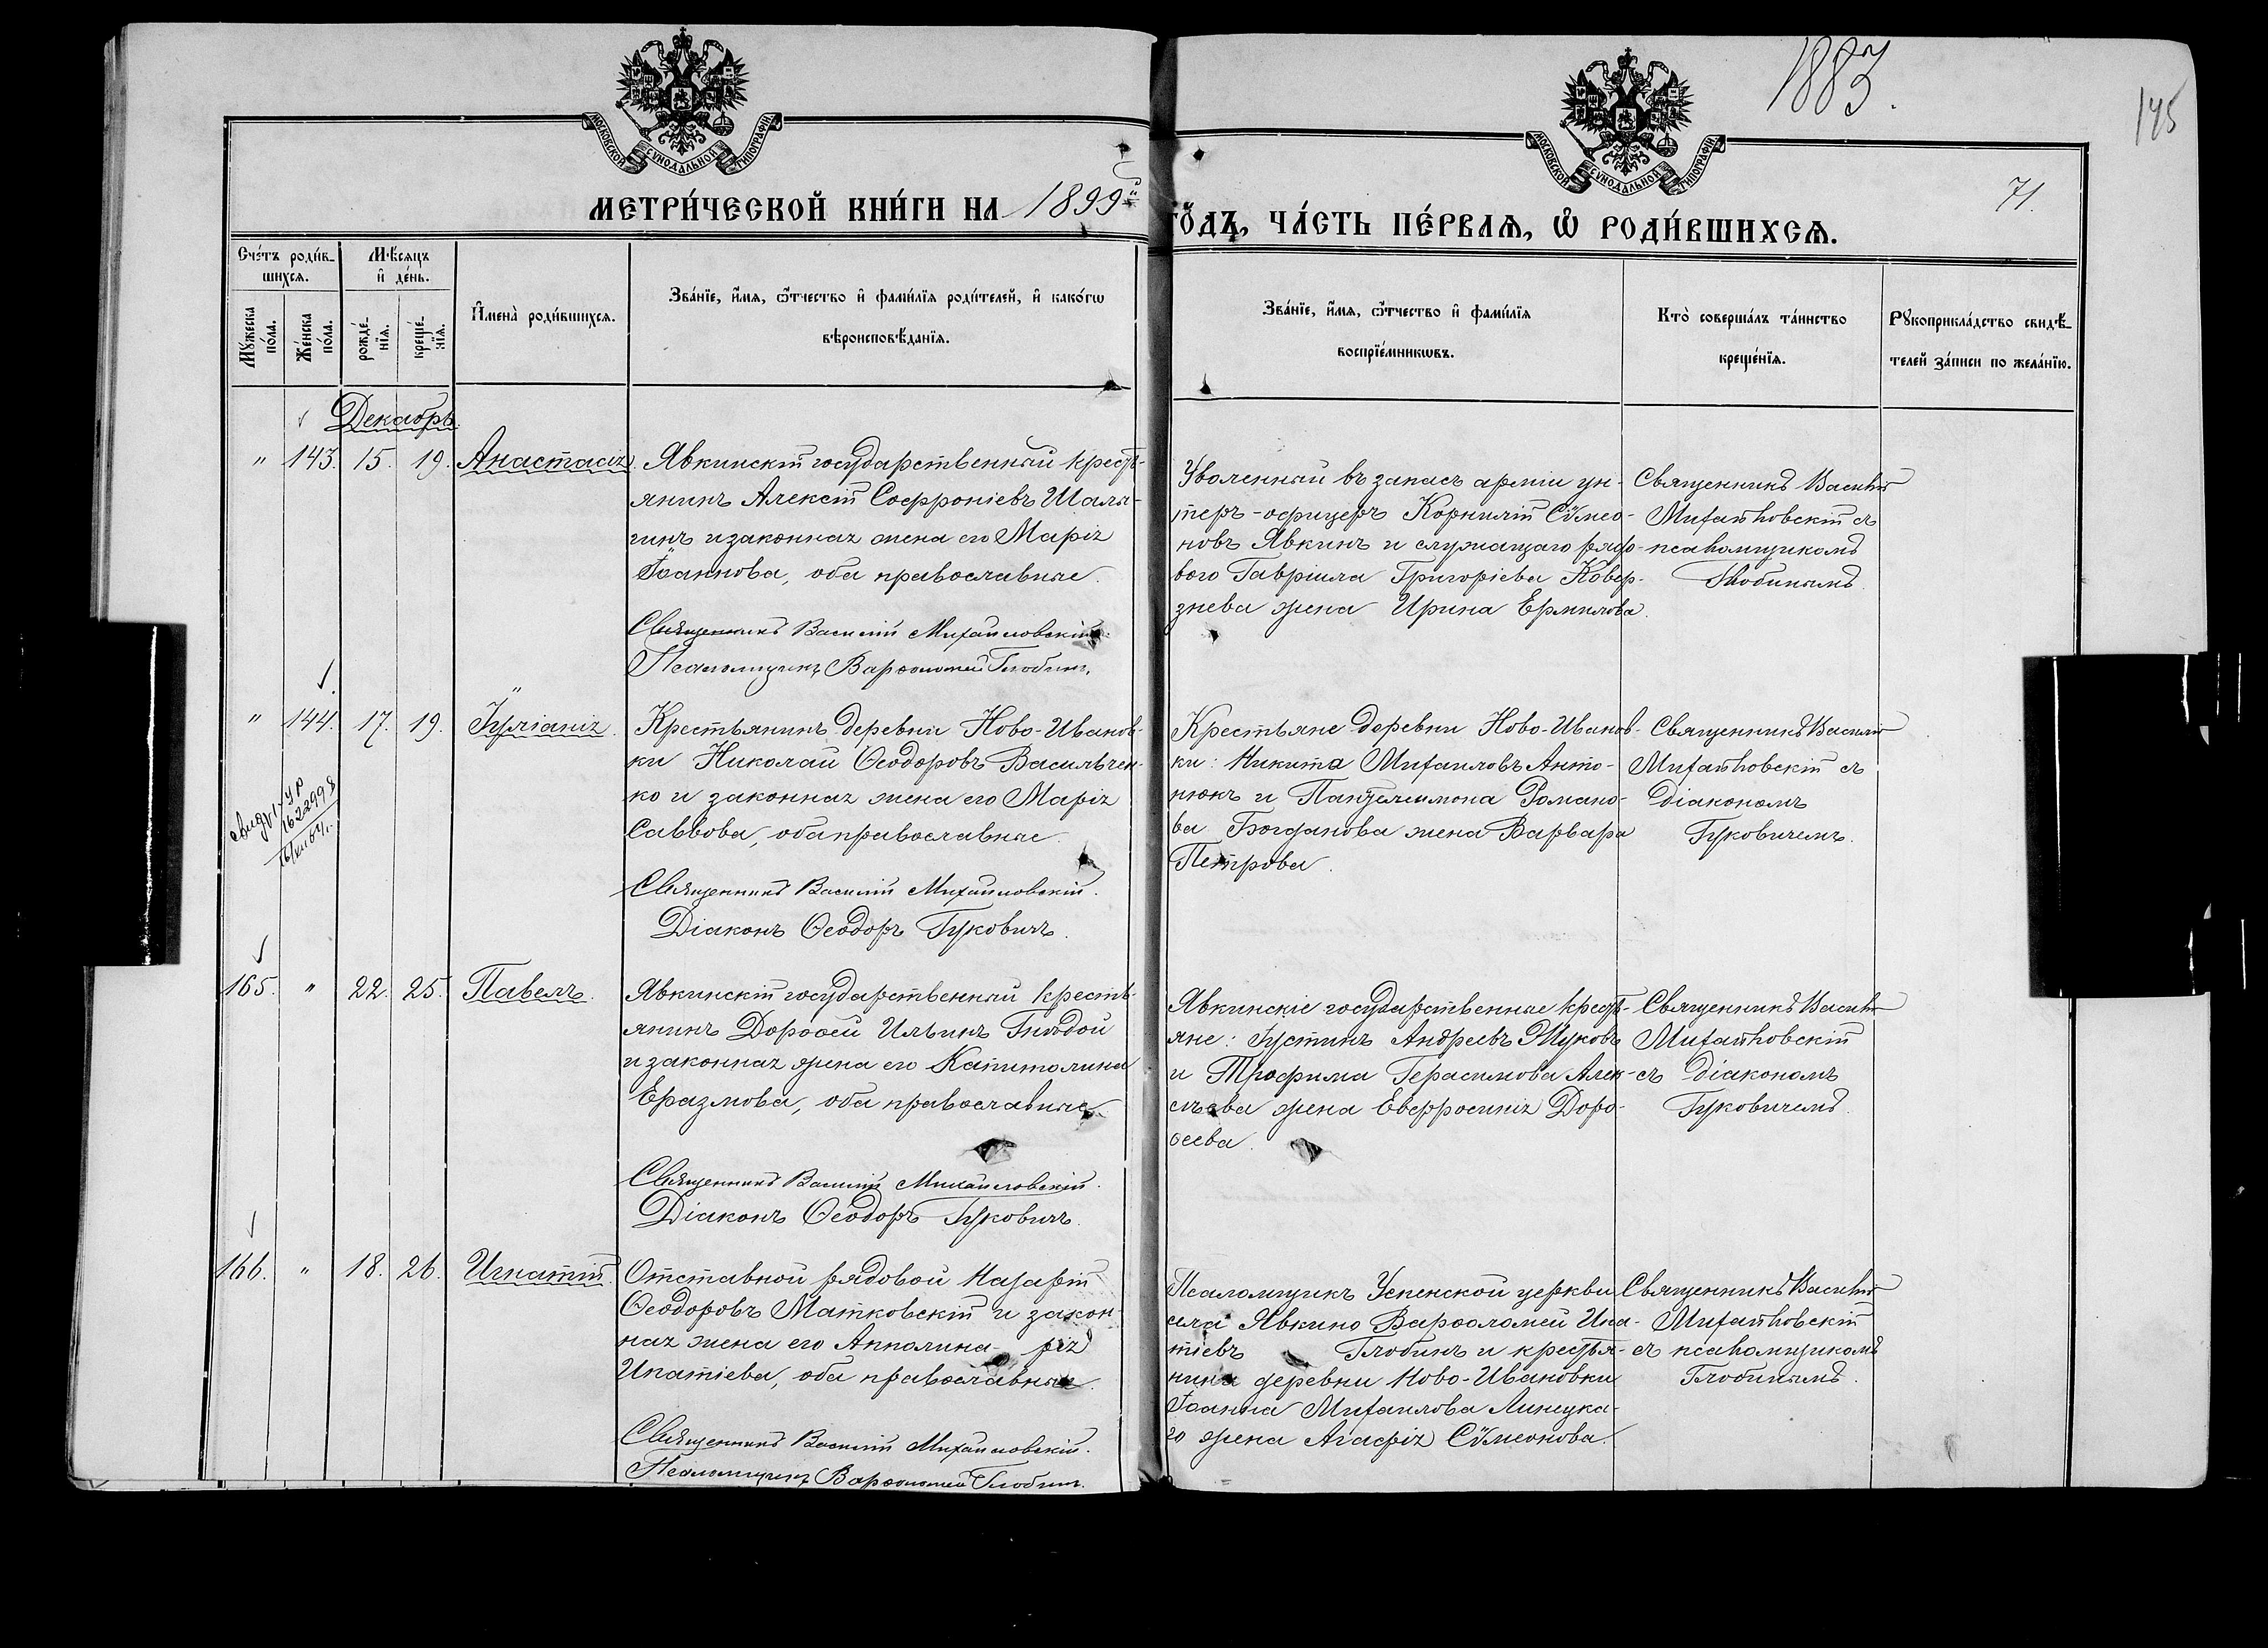 1883.
145
71.
МОСКОВСКОЙ СѴНОДАЛЬНОЙ ТИПОГРАФІИ
МОСКОВСКОЙ СѴНОДАЛЬНОЙ ТИПОГРАФІИ
МЕТРИ́ЧЕСКОЙ КНИ́ГИ НА 1899й ГО́ДЪ, ЧА́СТЬ ПЕ́РВАѦ, Ѡ РОДИ́ВШИХСѦ.
Сче́тъ роди́в-
шихсѧ.
Мꙋ́жеска по́ла.
Же́нска по́ла.
Мѣ́сѧцъ
и҆ де́нь.
рожде́-
нїѧ.
креще́-
нїѧ.
И҆мена̀ роди́вшихсѧ.
Зва́нїе, и҆́мѧ, ѻ҆́тчество и҆ фами́лїѧ роди́телей, и҆ како́гѡ
вѣроисповѣ́данїѧ.
Зва́нїе, и҆́мѧ, ѻ҆́тчество и҆ фами́лїѧ
воспрїе́мникѡвъ.
Кто̀ соверша́лъ та́инство
креще́нїѧ.
Рꙋкоприкла́дство свидѣ́-
телей за́писи по жела́нїю.
Декабрь.
" 143. 15. 19. Анастасія.
Явкинскій государственный кресть-
янинъ Алексій Софроніевъ Шалы-
гинъ и законная жена его Марія
Іоаннова, оба православные.
Священникъ Василій Михайловскій.
Псаломщикъ Варѳоломей Глобинъ.
Уволенный въ запасъ арміи ун-
теръ-офицеръ Корнилій Сѵмео-
новъ Явкинъ и служащаго рядо-
вого Гавріила Григоріева Ковер-
знева жена Ирина Ермилова.
Священникъ Василій
Михайловскій съ
псаломщикомъ
Глобинымъ.
" 144. 17. 19. Іуліанія.
свид. 1-УР
1622998
Крестьянинъ деревни Ново-Иванов-
ки Николай Ѳеодоровъ Васильчен-
ко и законная жена его Марія
Саввова, оба православные.
Священникъ Василій Михайловскій.
Діаконъ Ѳеодоръ Гуковичъ.
Крестьяне деревни Ново-Иванов-
ки: Никита Михаиловъ Анто-
нюкъ и Пантелеимона Романо-
ва Богданова жена Варвара
Петрова.
Священникъ Василій
Михайловскій съ
діакономъ
Гуковичемъ.
165. " 22. 25. Павелъ.
Явкинскій государственный кресть-
янинъ Дороѳей Ильинъ Гнѣдой
и законная жена его Капитолина
Еразмова, оба православные.
Священникъ Василій Михайловскій.
Діаконъ Ѳеодоръ Гуковичъ.
Явкинскіе государственные кресть-
яне: Іустинъ Андреевъ Жуковъ
и Трофима Герасимова Алек-
сѣева жена Евфросинія Доро-
ѳеева.
Священникъ Василій
Михайловскій
съ діакономъ
Гуковичемъ.
166. " 18. 26. Игнатій.
Отставной рядовой Назарій
Ѳеодоровъ Матковскій и закон-
ная жена его Апполина- рія
Ипатіева, оба православные.
Священникъ Василій Михайловскій.
Псаломщикъ Варѳоломей Глобинъ.
Псаломщикъ Успенской церкви
села Явкино Варѳоломей Ипа-
тіевъ Глобинъ и крестья-
нина деревни Ново-Ивановки
Іоанна Михаилова Линецка-
го жена Агафія Сѵмеонова.
Священникъ Василій
Михайловскій
съ псаломщикомъ
Глобинымъ.